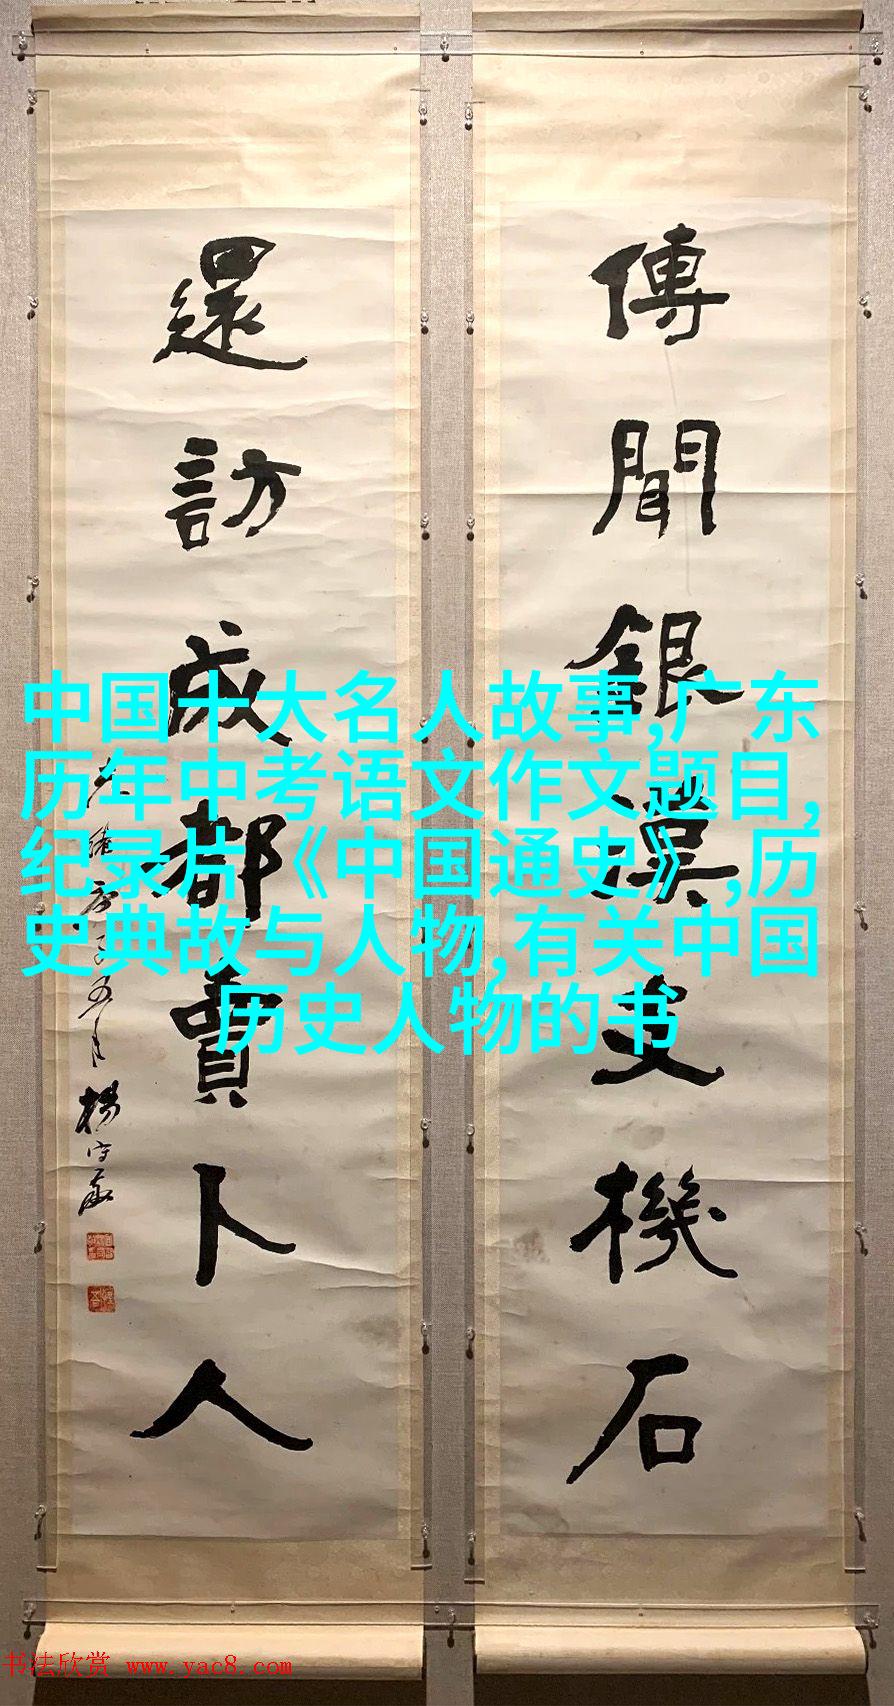 傳聞銀漢支機石
還訪成都賣卜人
光緒庚子五月
楊守敬
中国十大名人故事,广东
历年中考语文作文题目,
纪录片《中国通史》,历
史典故与人物,有关中国
历史人物的书
书法欣赏 www.yac8.com